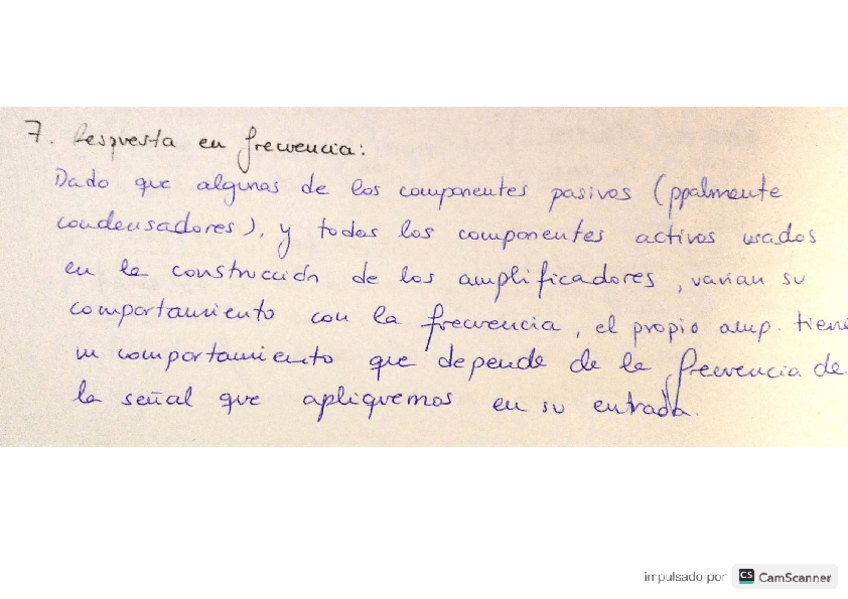 7. Respuesta en frecuencia:
Dado que algunos de los componentes pasivos (ppalmente
condensadores), y todos los componentes activos usados
en la construcción de los amplificadores, varían su
comportamiento con la frecuencia, el propio amp. tiene
un comportamiento que depende de la frecuencia de
la señal que apliquemos en su entrada.
impulsado por CS CamScanner